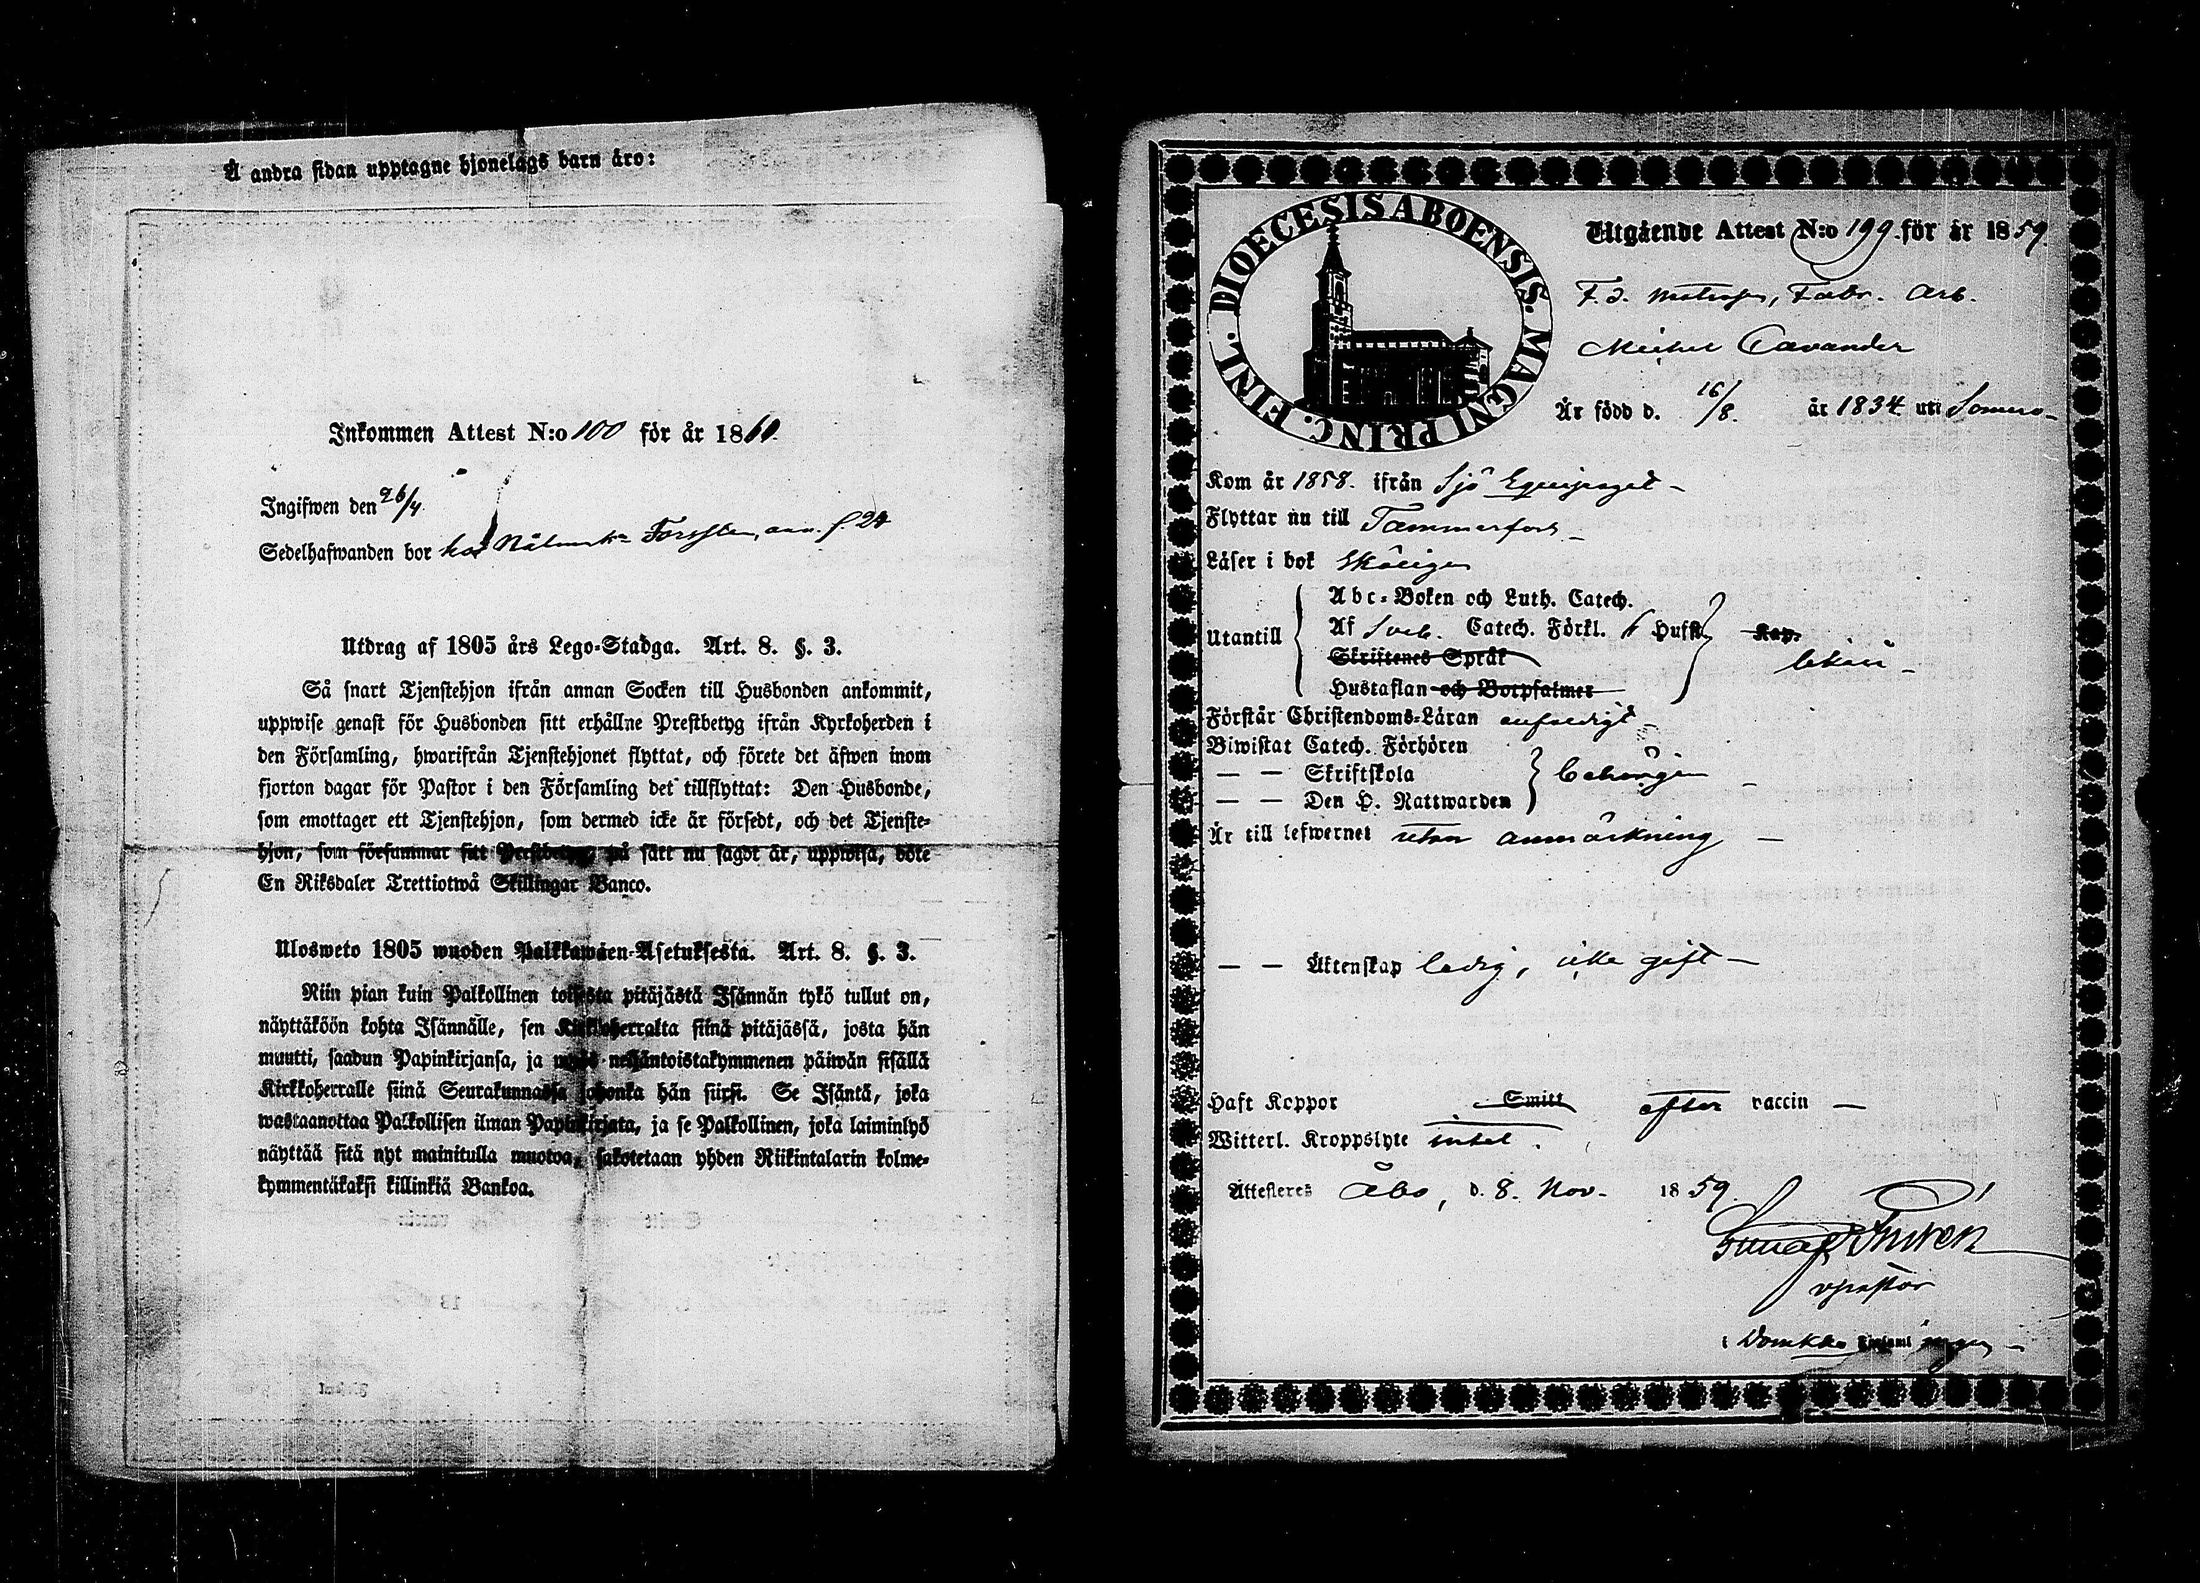 Å andra sidan upptagne hjonelags barn äro:
Inkommen Attest N:o 100 för år 1860.
Ingifwen den 26/4.
Sedelhafwanden bor hos Forssten, f. 24
Utdrag af 1805 års Lego-Stadga. Art. 8. §. 3.
Så snart Tjenstehjon ifrån annan Socken till Husbonden ankommit,
uppwise genast för Husbonden sitt erhållne Prestbetyg ifrån Kyrkoherden i
den Församling, hwarifrån Tjenstehjonet flyttat, och förete det äfwen inom
fjorton dagar för Pastor i den Församling det tillflyttat: Den Husbonde,
som emottager ett Tjenstehjon, som dermed icke är försedt, och det Tjenste-
hjon, som försummar sitt Prestbetyg, på sätt nu sagdt är, uppwisa, böte
En Riksdaler Trettiotwå Skillingar Banco.
Ulosweto 1805 wuoden Palkkawäen-Asetuksesta. Art. 8. §. 3.
Niin pian kuin Palkollinen toisesta pitäjästä Isännän tykö tullut on,
näyttäköön kohta Isännälle, sen Kirkkoherralta siinä pitäjässä, josta hän
muutti, saadun Papinkirjansa, ja myös neljäntoistakymmenen päiwän sisällä
Kirkkoherralle siinä Seurakunnassa johonka hän siirsi. Se Isäntä, joka
wastaanottaa Palkollisen ilman Papinkirjata, ja se Palkollinen, joka laiminlyö
näyttää sitä nyt mainitulla muotoa, sakotetaan yhden Riikintalarin kolme-
kymmentäkaksi killinkiä Bankoa.
DIOECESIS ABOENSIS. MAGNI PRINC. FINL.
Utgående Attest N:o 199 för år 1859.
F. d. matros, Fabr. Arb.
Michel Cavander
Är född d. 16/8. år 1834 uti Somero
Kom år 1858. ifrån Sjö Equipaget
Flyttar nu till Tammerfors
Läser i bok skäligen
Utantill
Abc-Boken och Luth. Catech.
Af Sveb. Catech. Förkl. 6 Hufst.
Skriftenes Språk
Hustaflan och Botpsalmer
Kap.
Förstår Christendoms-Läran enfaldigt
Biwistat Catech. Förhören
— — Skriftskola
— — Den H. Nattwarden
behörigen
Är till lefwernet utan anmärkning
— — Äktenskap ledig, icke gift
Haft Koppor Smitt efter vaccin
Witterl. Kroppslyte intet.
Attesteres Åbo, d. 8. Nov. 1859.
vpastor
i Domkko Församlingen